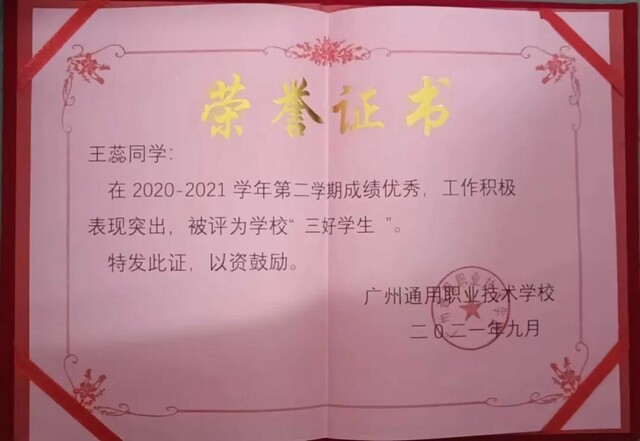 荣誉证书
王蕊同学：
在 2020-2021 学年第二学期成绩优秀，工作积极
表现突出，被评为学校“ 三好学生 ”。
特发此证，以资鼓励。
广州通用职业技术学校
二０二一年九月